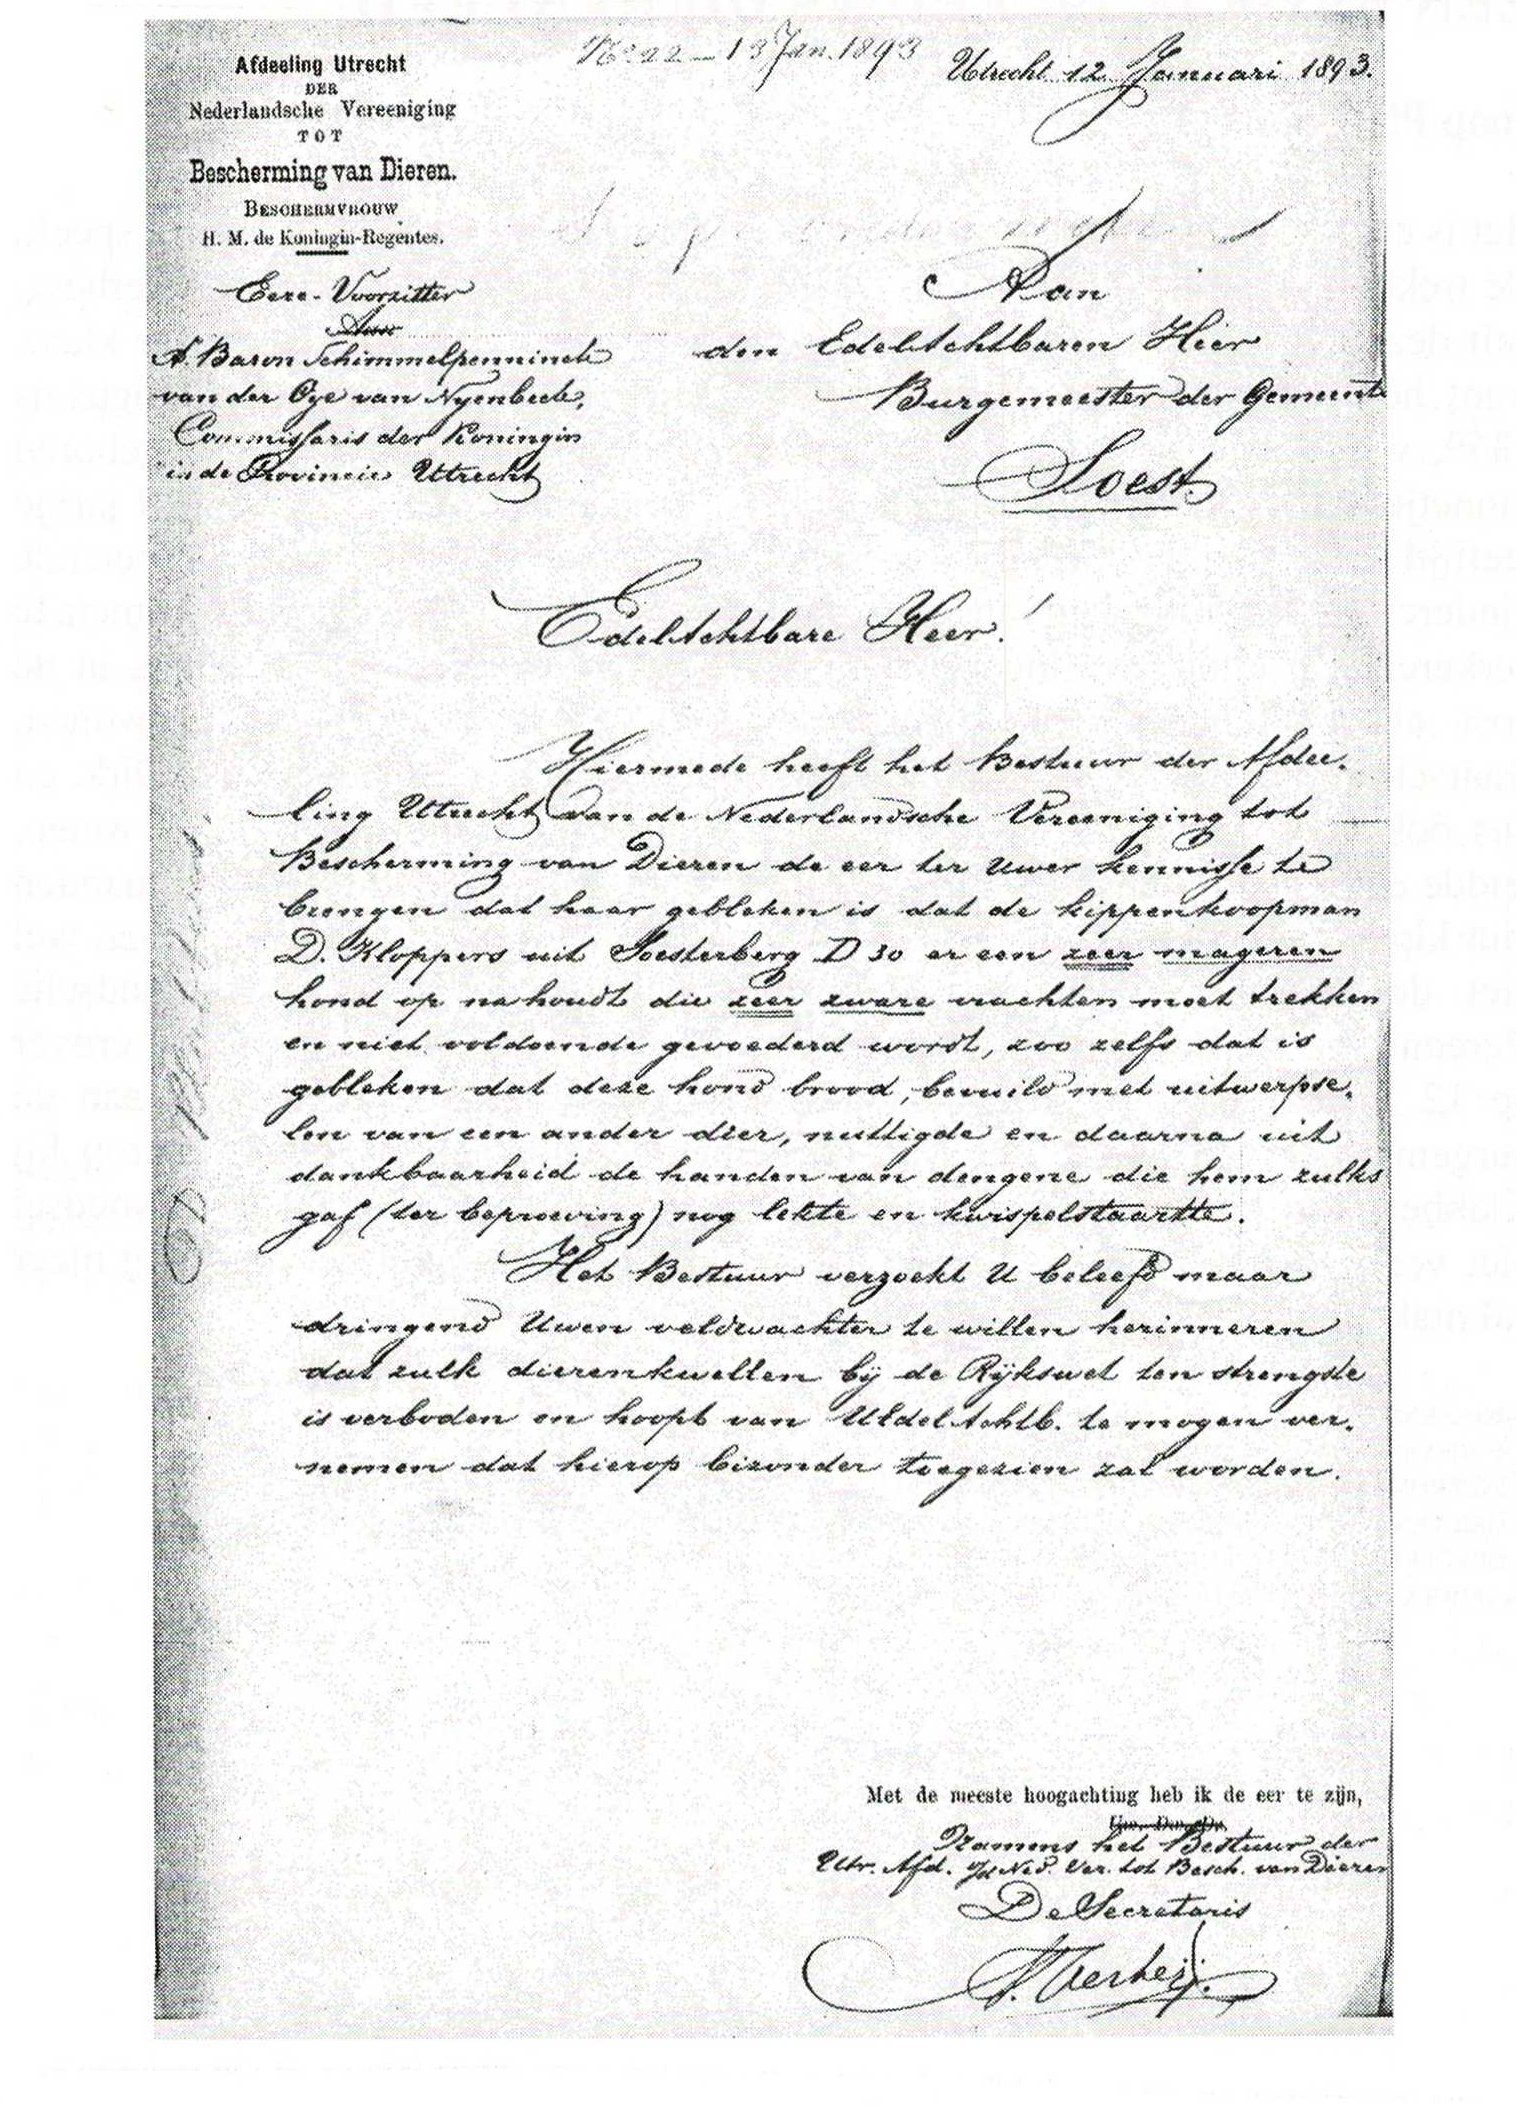 Afdeeling Utrecht
DER
Nederlandsche Vereeniging
TOT
Bescherming van Dieren.
BESCHERMVROUW
H. M. de Koningin-Regentes.
Eere-Voorzitter
A. Baron Schimmelpenninck
van der Oye van Nyenbeek,
Commissaris der Koningin
in de Provincie Utrecht
No 22 - 13 Jan. 1893
Utrecht 12 Januari 1893.
Aan
den EdelAchtbaren Heer
Burgemeester der Gemeente
Soest
EdelAchtbare Heer!
Hiermede heeft het Bestuur der Afdee-
ling Utrecht van de Nederlandsche Vereeniging tot
Bescherming van Dieren de eer ter Uwer kennisse te
brengen dat haar gebleken is dat de kippenkoopman
D. Kloppers uit Soesterberg D 30 er een zeer mageren
hond op na houdt die zeer zware vrachten moet trekken
en niet voldoende gevoederd wordt, zoo zelfs dat is
gebleken dat deze hond brood, bevuild met uitwerpse-
len van een ander dier, nuttigde en daarna uit
dankbaarheid de handen van dengene die hem zulks
gaf (ter beproeving) nog lekte en kwispelstaartte.
Het Bestuur verzoekt U beleefd maar
dringend Uwen veldwachter te willen herinneren
dat zulk dierenkwellen bij de Rijkswet ten strengste
is verboden en hoopt van UEdelAchtb. te mogen ver-
nemen dat hierop bizonder toegezien zal worden.
Met de meeste hoogachting heb ik de eer te zijn,
Namens het Bestuur der
Utr. Afd. v/d Ned. Ver. tot Besch. van Dieren
De Secretaris
Verheij.